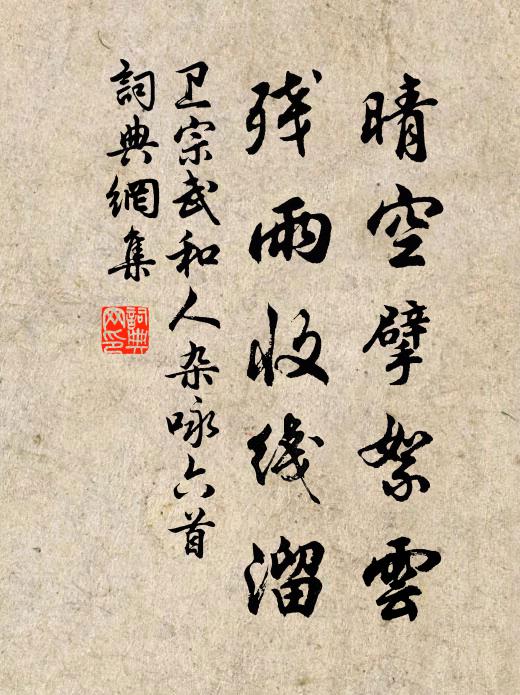 晴空擘絮雲
残雨收线溜
卫宗武和人杂咏六首
詞典網集
詞典
网印